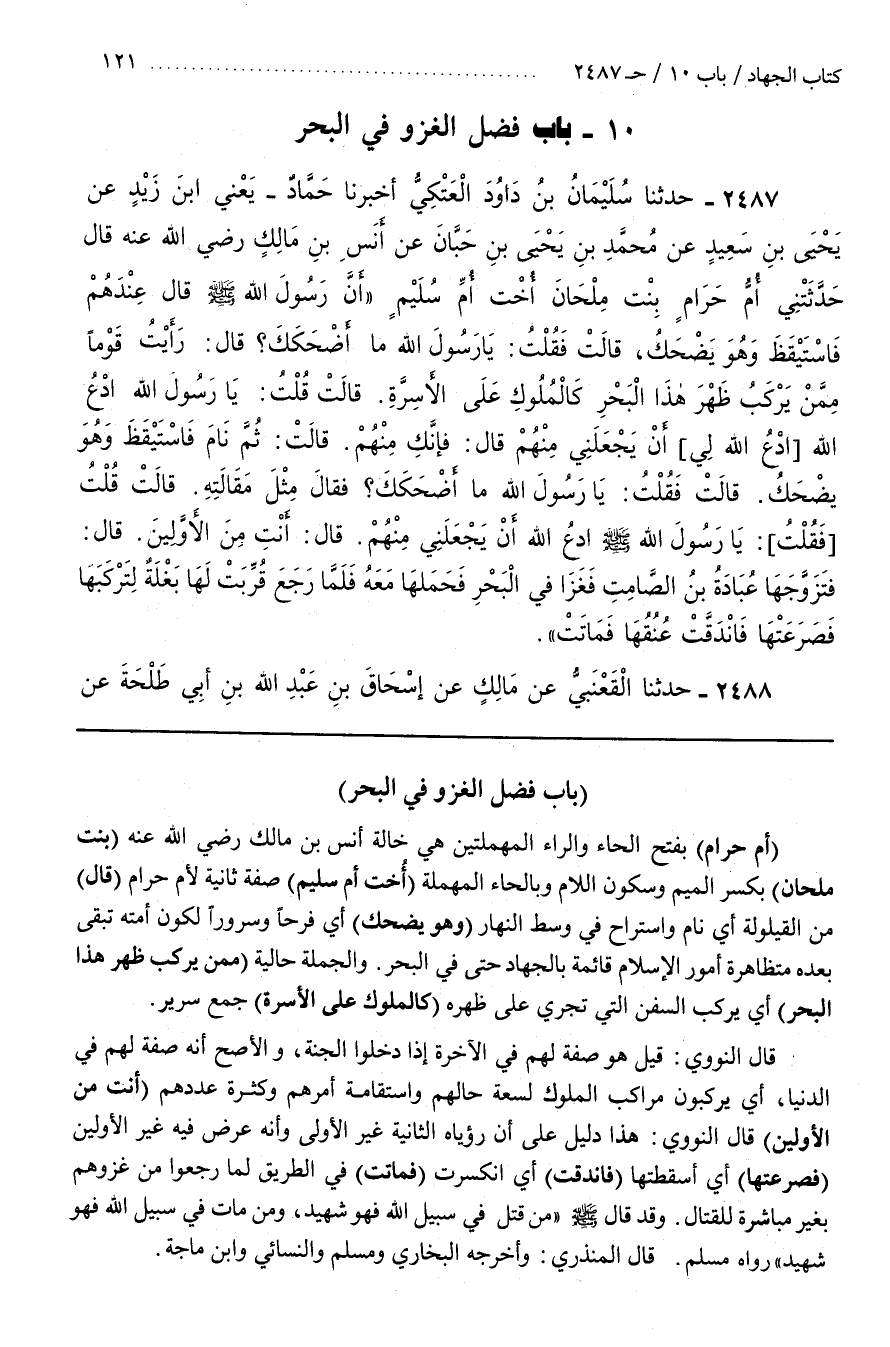 كتاب الجهاد / باب ١٠ / حـ ٢٤٨٧ ........................................ ١٢١
١٠ ـ باب فضل الغزو في البحر
٢٤٨٧ ـ حدثنا سُلَيْمَانُ بنُ دَاوُدَ الْعَتَكِيُّ أخبرنا حَمَّادٌ ـ يَعْني ابنَ زَيْدٍ عن
يَحْيَى بنِ سَعِيدٍ عن مُحمَّدِ بنِ يَحْيَى بنِ حَبَّانَ عن أَنَسِ بنِ مَالِكٍ رضي الله عنه قال
حَدَّثَتْنِي أُمُّ حَرَامٍ بِنْت مِلْحَانَ أُخْت أُمِّ سُلَيْمٍ «أَنَّ رَسُولَ الله ﷺ قال عِنْدَهُمْ
فَاسْتَيْقَظَ وَهُوَ يَضْحَكُ، قالَتْ فَقُلْتُ: يَارَسُولَ الله ما أَضْحَكَكَ؟ قال: رَأَيْتُ قَوْماً
مِمَّنْ يَرْكَبُ ظَهْرَ هٰذَا الْبَحْرِ كَالْمُلُوكِ عَلَى الأَسِرَّةِ. قالَتْ قُلْتُ: يَا رَسُولَ الله ادْعُ
الله [ادْعُ الله لِي] أَنْ يَجْعَلَنِي مِنْهُمْ قال: فإنَّكِ مِنْهُمْ. قالَتْ: ثُمَّ نَامَ فَاسْتَيْقَظَ وَهُوَ
يضْحَكُ. قالَتْ فَقُلْتُ: يَا رَسُولَ الله ما أَضْحَكَكَ؟ فقالَ مِثْلَ مَقَالَتِهِ. قالَتْ قُلْتُ
[فَقُلْتُ]: يَا رَسُولَ الله ﷺ ادعُ الله أَنْ يَجْعَلَنِي مِنْهُمْ. قال: أَنْتِ مِنَ الأَوَّلِينَ. قال:
فَتَزَوَّجَهَا عُبَادَةُ بنُ الصَّامِتِ فَغَزَا في الْبَحْرِ فَحَمَلهَا مَعَهُ فَلَمَّا رَجَعَ قُرِّبَتْ لَهَا بَغْلَةٌ لِتَرْكَبَهَا
فَصَرَعَتْهَا فَانْدَقَّتْ عُنُقُهَا فَمَاتَتْ».
٢٤٨٨ ـ حدثنا الْقَعْنَبيُّ عن مَالِكٍ عن إسْحَاقَ بنِ عَبْدِ الله بنِ أبِي طَلْحَةَ عن
(باب فضل الغزو في البحر)
(أم حرام) بفتح الحاء والراء المهملتين هي خالة أنس بن مالك رضي الله عنه (بنت
ملحان) بكسر الميم وسكون اللام وبالحاء المهملة (أُخت أم سليم) صفة ثانية لأم حرام (قال)
من القيلولة أي نام واستراح في وسط النهار (وهو يضحك) أي فرحاً وسروراً لكون أمته تبقى
بعده متظاهرة أمور الإسلام قائمة بالجهاد حتى في البحر. والجملة حالية (ممن يركب ظهر هذا
البحر) أي يركب السفن التي تجري على ظهره (كالملوك على الأسرة) جمع سرير.
قال النووي: قيل هو صفة لهم في الآخرة إذا دخلوا الجنة، و الأصح أنه صفة لهم في
الدنيا، أي يركبون مراكب الملوك لسعة حالهم واستقامة أمرهم وكثرة عددهم (أنت من
الأولين) قال النووي: هذا دليل على أن رؤياه الثانية غير الأولى وأنه عرض فيه غير الأولين
(فصرعتها) أي أسقطتها (فاندقت) أي انكسرت (فماتت) في الطريق لما رجعوا من غزوهم
بغير مباشرة للقتال. وقد قال ﷺ «من قتل في سبيل الله فهو شهيد، ومن مات في سبيل الله فهو
شهيد» رواه مسلم. قال المنذري: وأخرجه البخاري ومسلم والنسائي وابن ماجة.